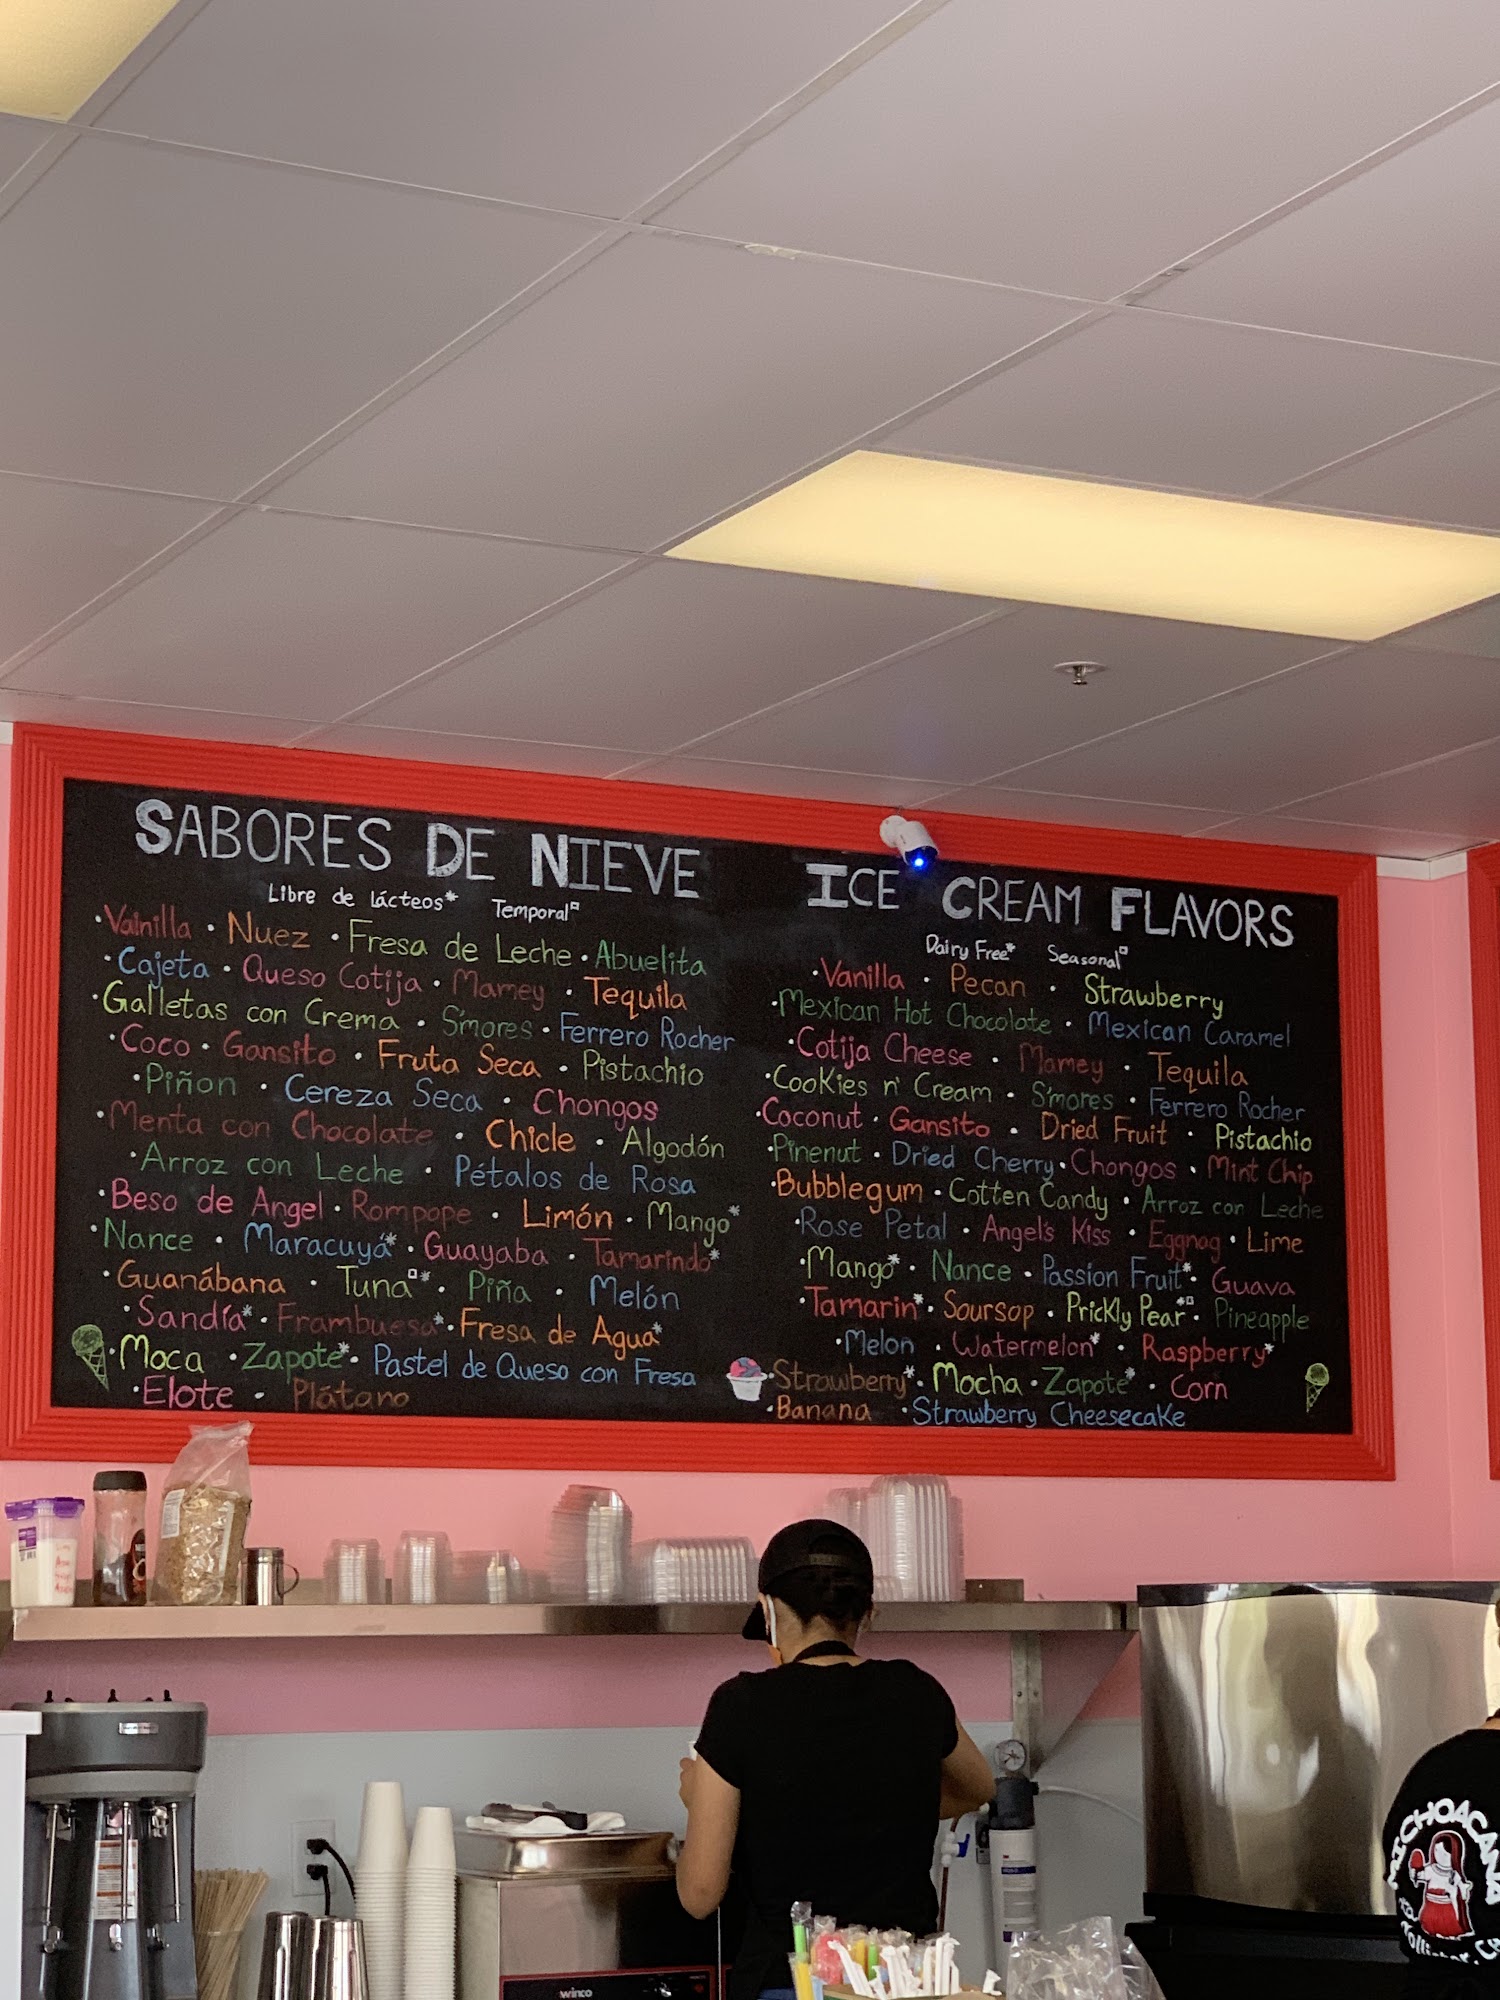 SABORES DE NIEVE
Libre de lácteos* Temporal▫
• Vainilla • Nuez • Fresa de Leche • Abuelita
• Cajeta • Queso Cotija • Mamey • Tequila
• Galletas con Crema • S'mores • Ferrero Rocher
• Coco • Gansito • Fruta Seca • Pistachio
• Piñon • Cereza Seca • Chongos
• Menta con Chocolate • Chicle • Algodón
• Arroz con Leche • Pétalos de Rosa
• Beso de Angel • Rompope • Limón • Mango*
• Nance • Maracuyá* • Guayaba • Tamarindo*
• Guanábana • Tuna▫* • Piña • Melón
• Sandía* • Frambuesa* • Fresa de Agua*
• Moca • Zapote* • Pastel de Queso con Fresa
• Elote • Plátano
ICE CREAM FLAVORS
Dairy Free* Seasonal▫
• Vanilla • Pecan • Strawberry
• Mexican Hot Chocolate • Mexican Caramel
• Cotija Cheese • Mamey • Tequila
• Cookies n' Cream • S'mores • Ferrero Rocher
• Coconut • Gansito • Dried Fruit • Pistachio
• Pinenut • Dried Cherry • Chongos • Mint Chip
• Bubblegum • Cotten Candy • Arroz con Leche
• Rose Petal • Angel's Kiss • Eggnog • Lime
• Mango* • Nance • Passion Fruit* • Guava
• Tamarin* • Soursop • Prickly Pear*▫ • Pineapple
• Melon • Watermelon* • Raspberry*
• Strawberry* • Mocha • Zapote* • Corn
• Banana • Strawberry Cheesecake
winco
MICHOACANA